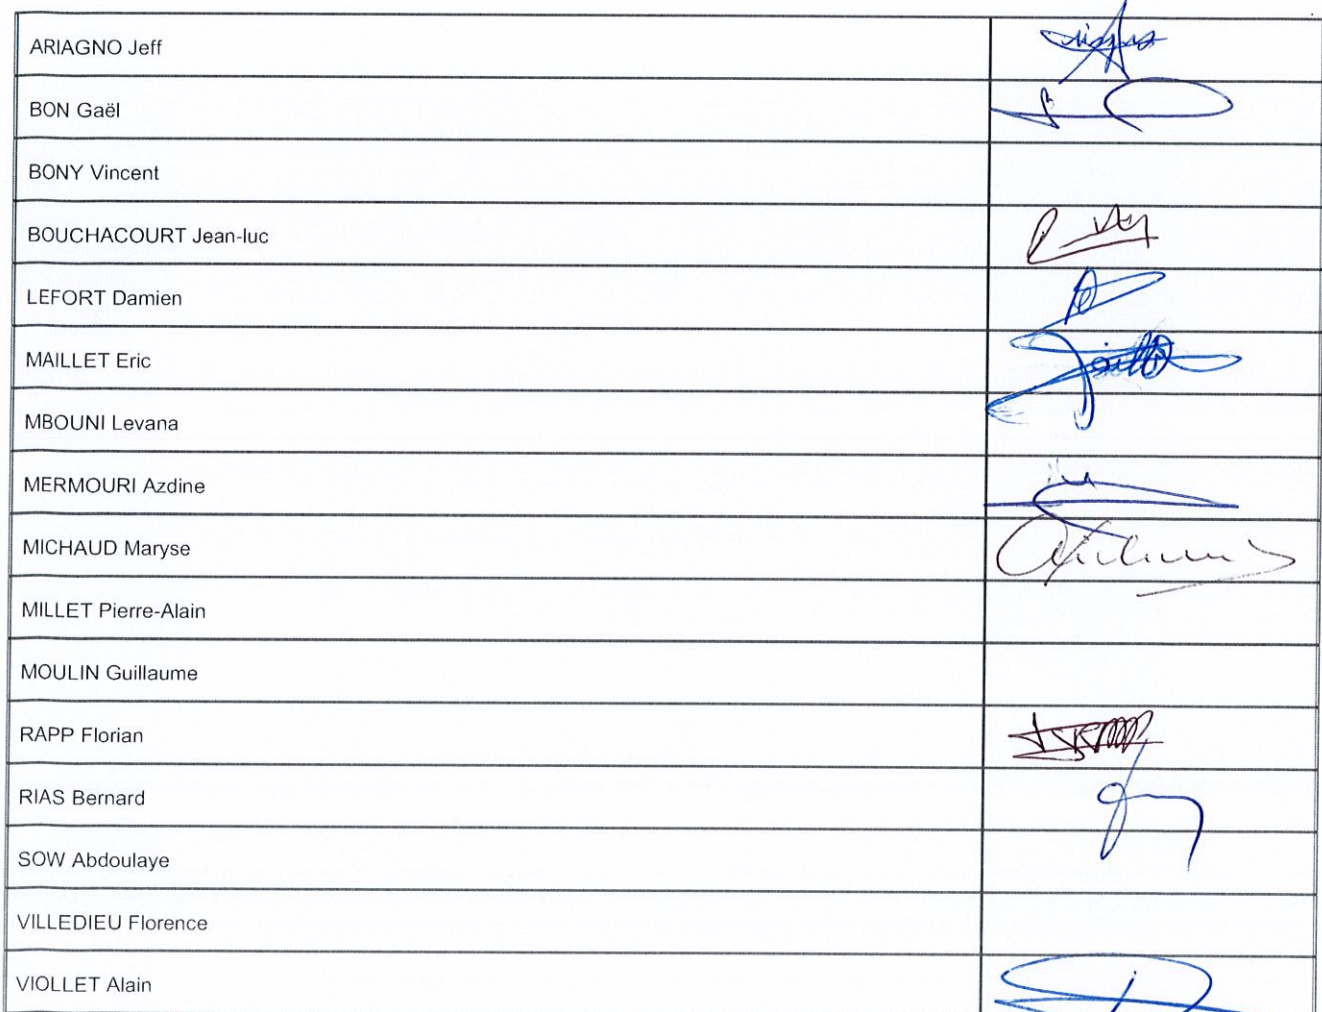 ARIAGNO Jeff
BON Gaël
BONY Vincent
BOUCHACOURT Jean-luc
LEFORT Damien
MAILLET Eric
MBOUNI Levana
MERMOURI Azdine
MICHAUD Maryse
MILLET Pierre-Alain
MOULIN Guillaume
RAPP Florian
RIAS Bernard
SOW Abdoulaye
VILLEDIEU Florence
VIOLLET Alain